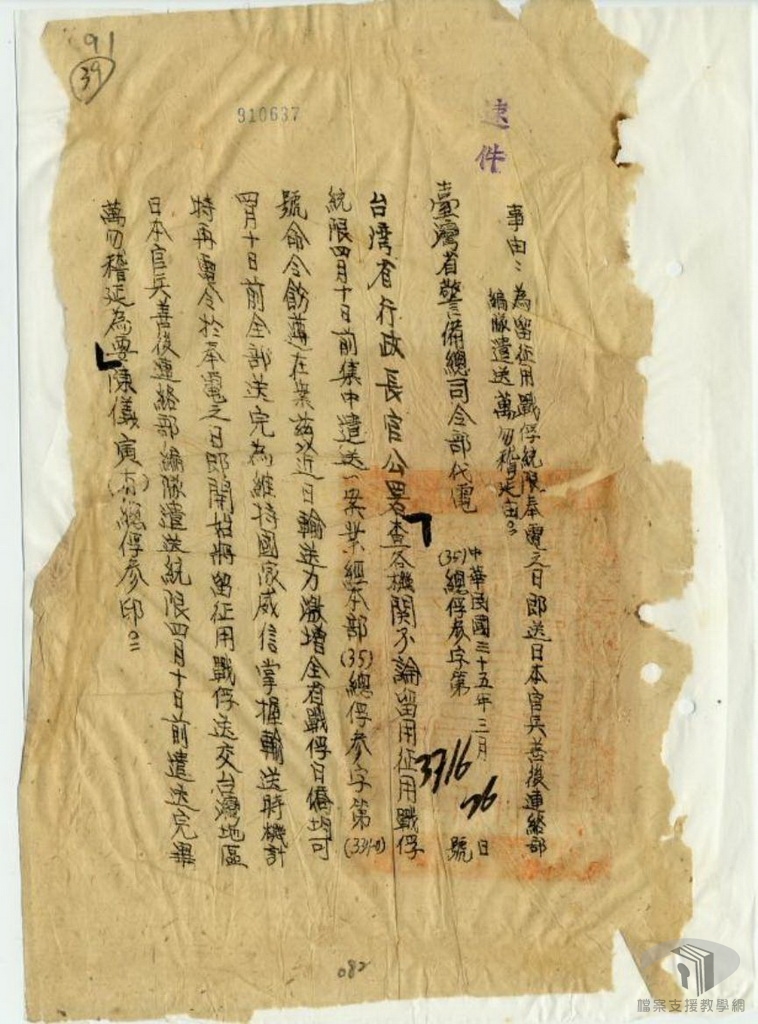 91
39
910637
速件
事由：為留征用戰俘統限奉電之日即送日本官兵善後連絡部
編隊遣送萬勿稽延由。
臺灣省警備總司令部代電
中華民國三十五年三月26日
(35)總俘參字第3716號
台湾省行政長官公署查各機關不論留用征用戰俘
統限四月十日前集中遣送一案業經本部(35)總俘參字第
號命令飭遵在案茲以近日輸送力激增全省戰俘日僑均可
四月十日前全部送完為維持國家威信掌握輸送時機計
特再電令於奉電之日即開始將留征用戰俘送交台灣地區
日本官兵善後連絡部編隊遣送統限四月十日前遣送完畢
萬勿稽延為要陳儀寅總俘參印。
082
檔案支援教學網